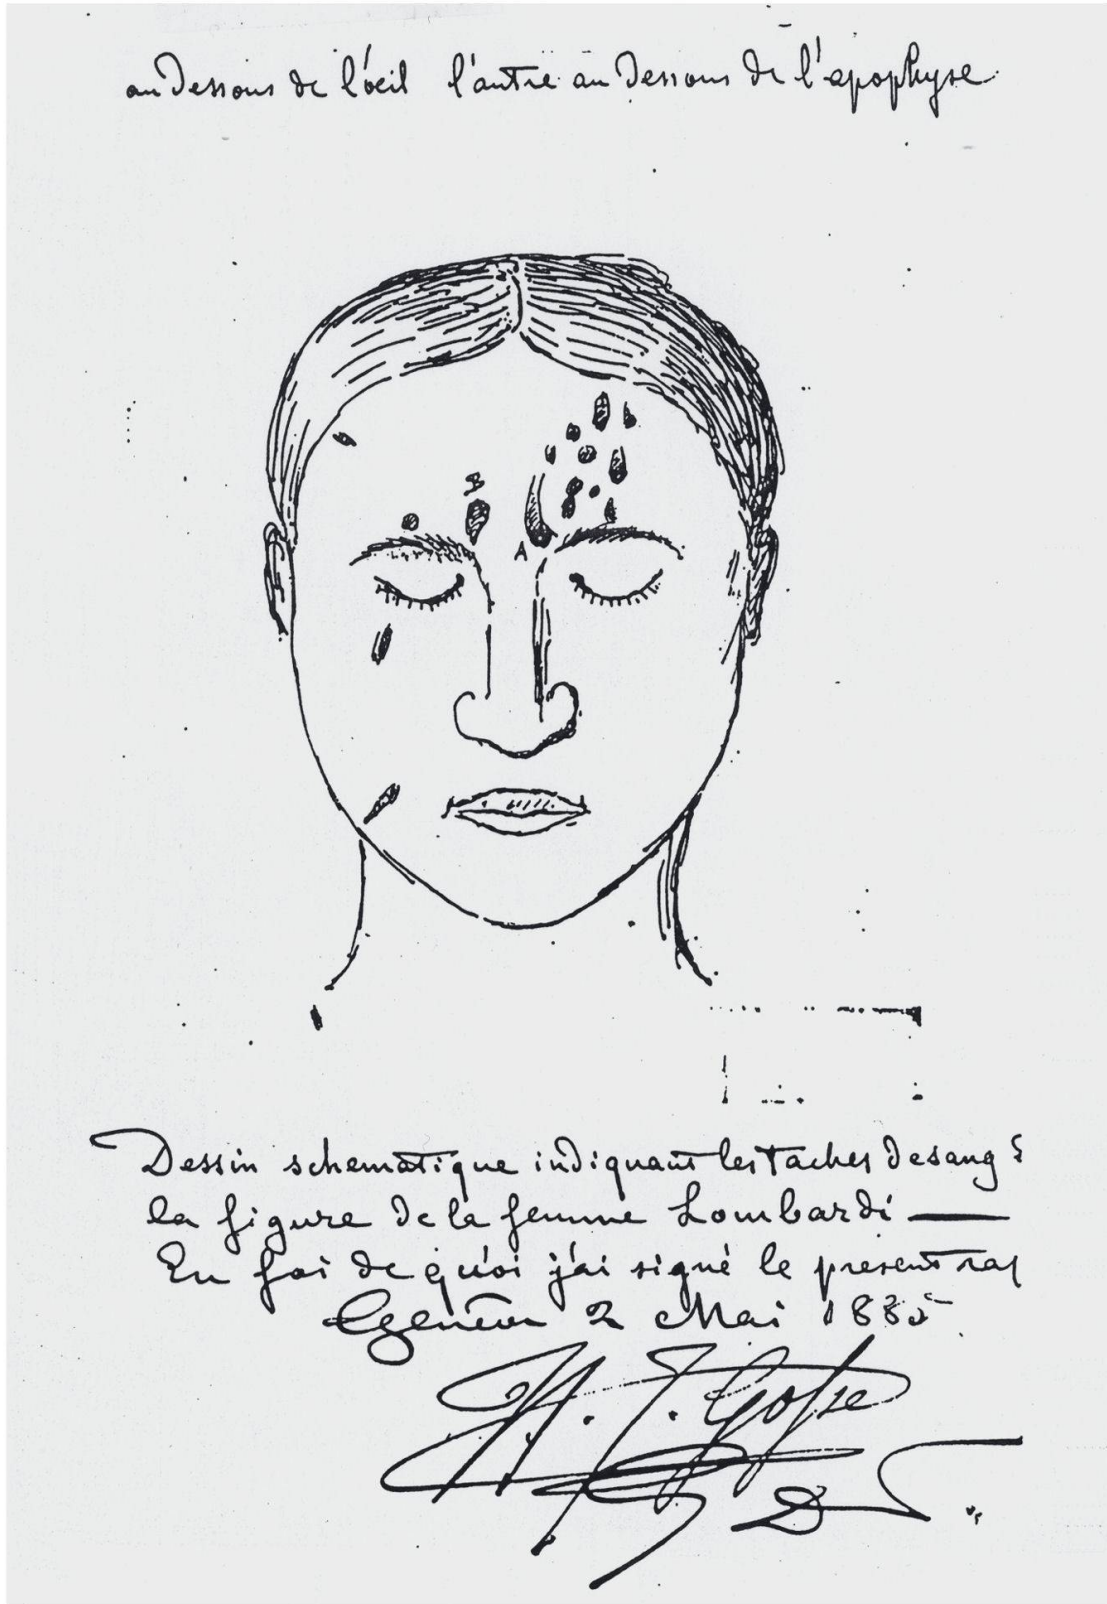 au Dessous de l'œil l'autre au Dessous de l'apophyse
B
A
Dessin schematique indiquant les taches de sang
la figure de la femme Lombardi —
En foi de quoi j'ai signé le present rap
Genève 2 Mai 1885
H. J. Gosse
D